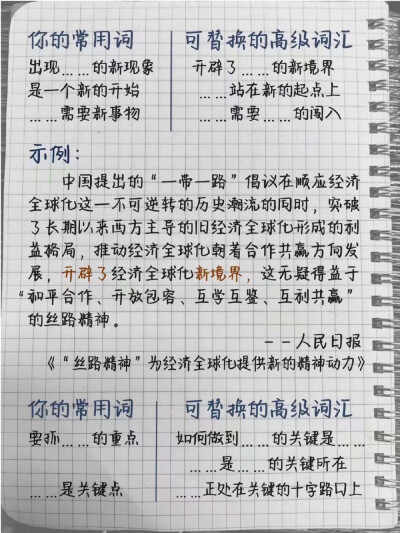 你的常用词 可替换的高级词汇
出现……的新现象 开辟了……的新境界
是一个新的开始 ……站在新的起点上
……需要新事物 ……需要……的闯入
示例：
中国提出的“一带一路”倡议在顺应经济
全球化这一不可逆转的历史潮流的同时，突破
了长期以来西方主导的旧经济全球化形成的利
益格局，推动经济全球化朝着合作共赢方向发
展，开辟了经济全球化新境界，这无疑得益于
“和平合作、开放包容、互学互鉴、互利共赢”
的丝路精神。
——人民日报
《“丝路精神”为经济全球化提供新的精神动力》
你的常用词 可替换的高级词汇
要抓……的重点 如何做到……的关键是……
……是……的关键所在
……是关键点 ……正处在关键的十字路口上